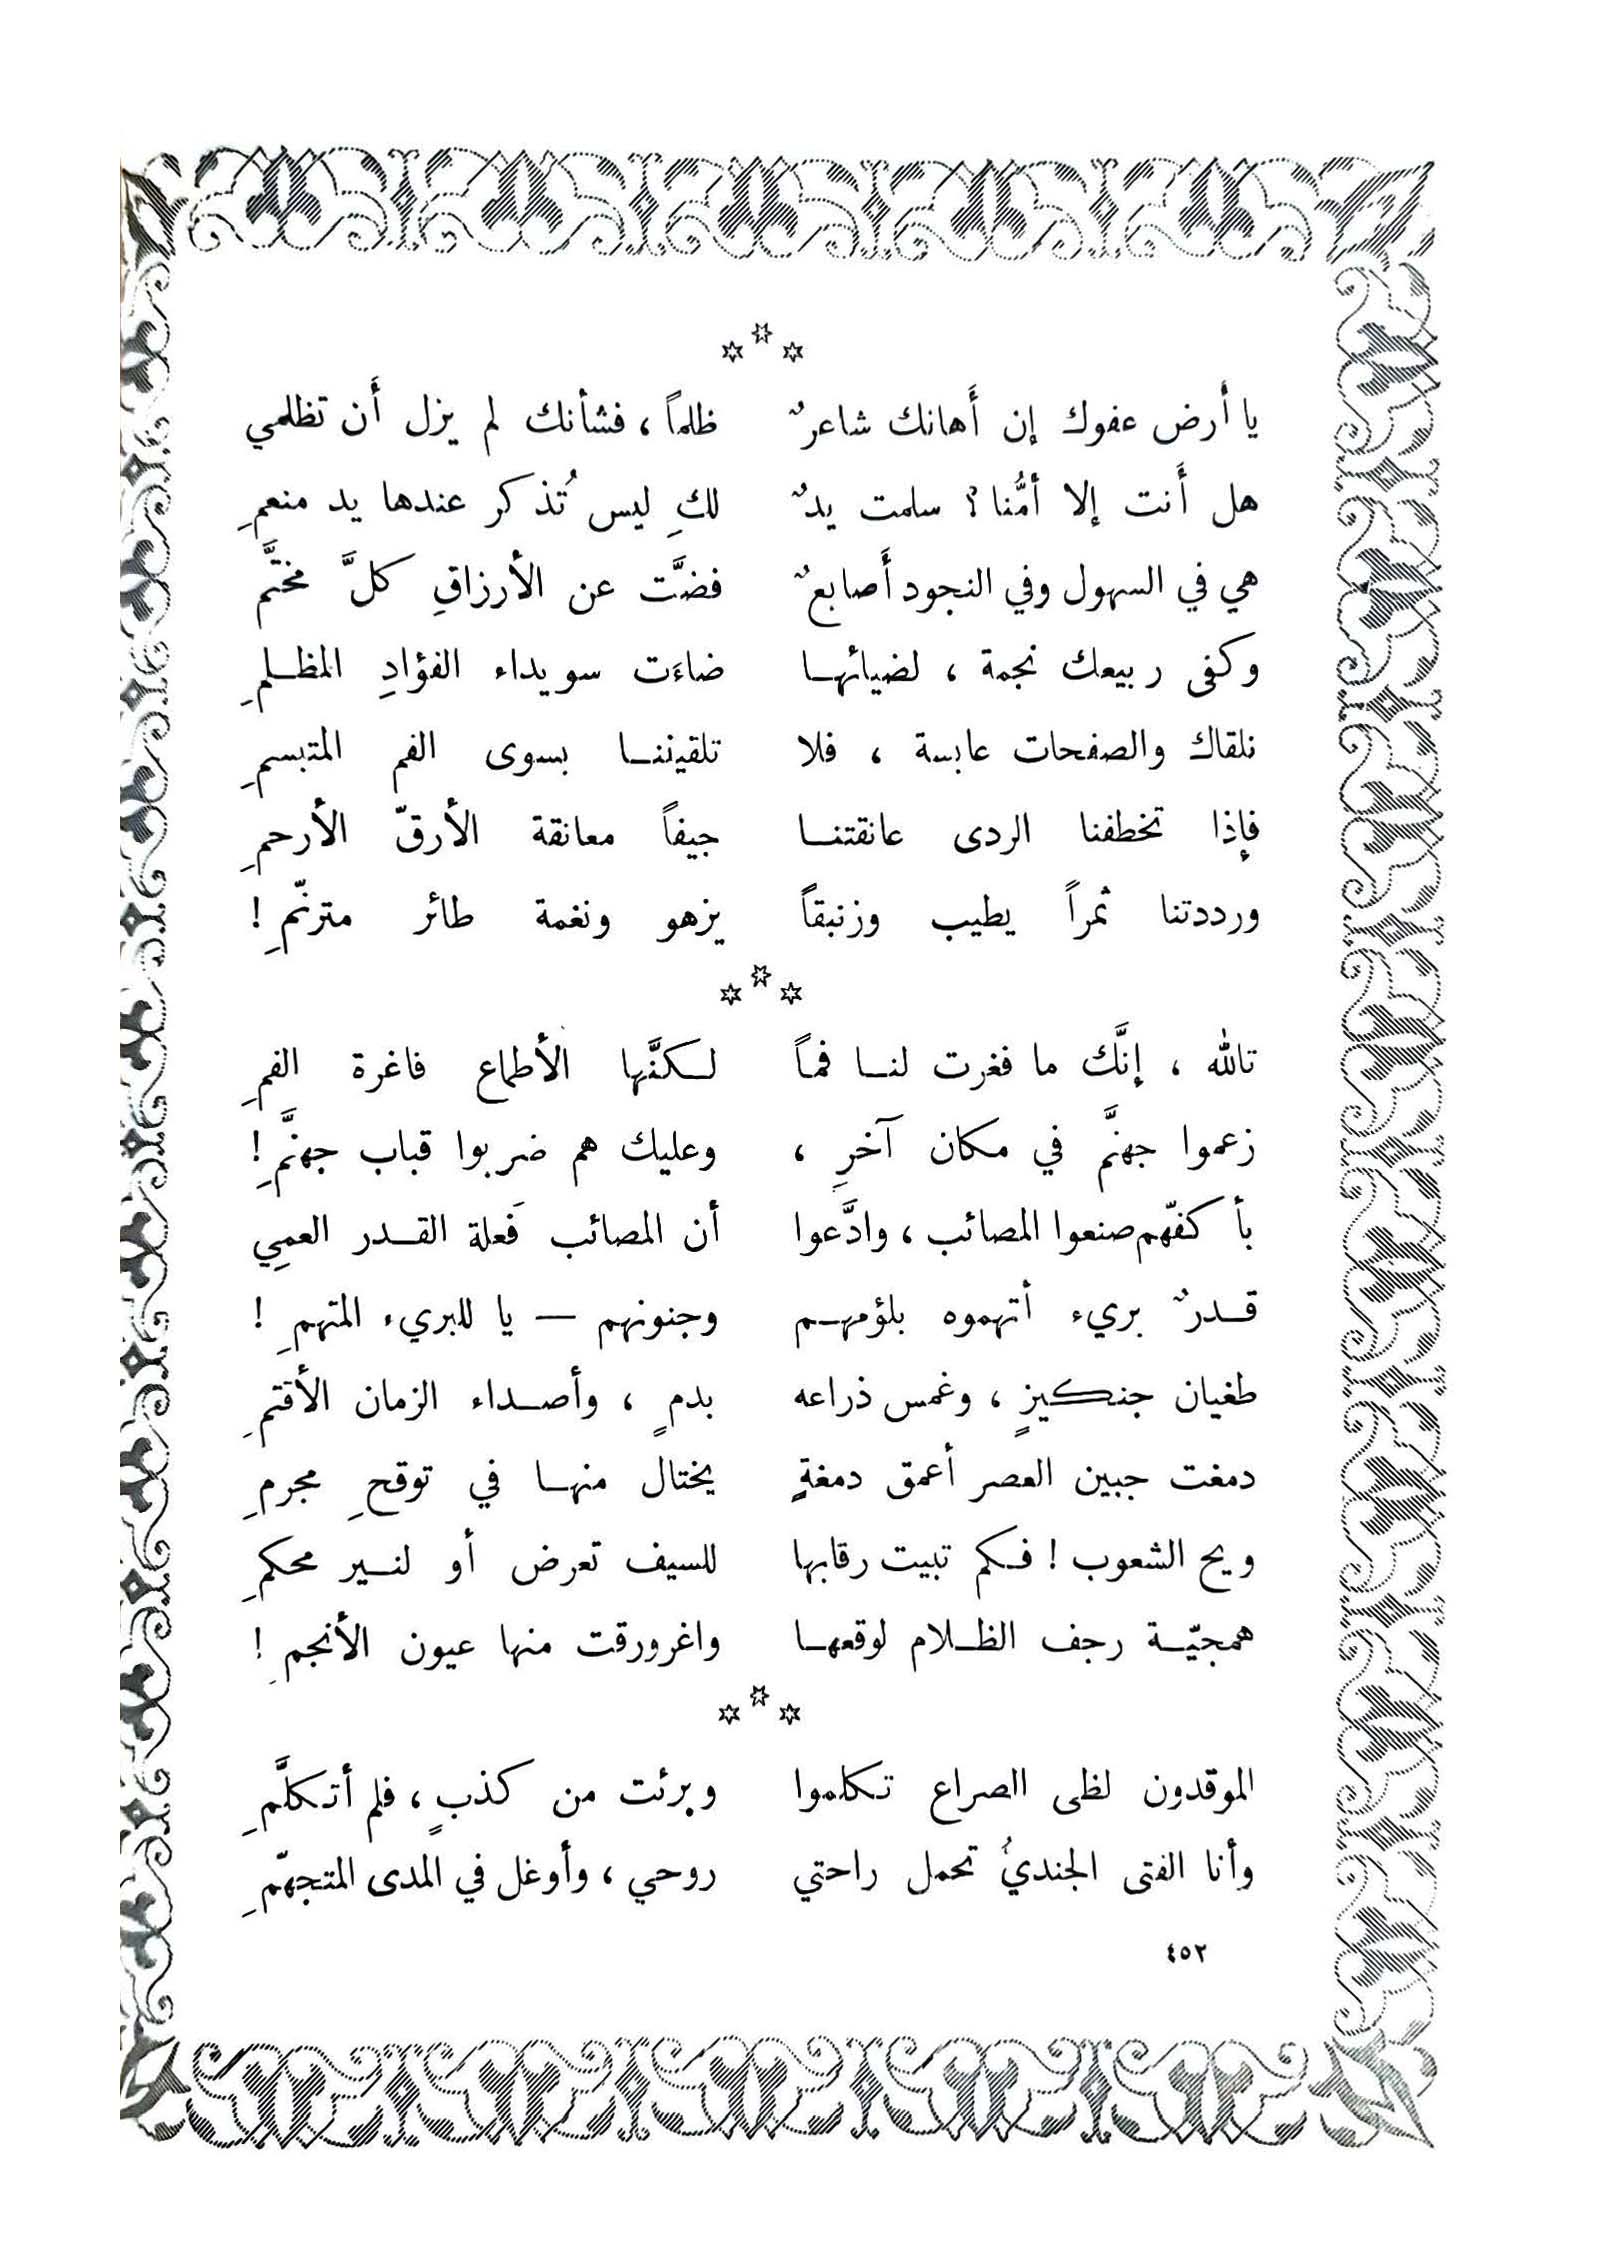 يا أرض عفوك إن أَهانك شاعرٌ ظلماً ، فشأنك لم يزل أَن تظلمي
هل أَنت إلا أمُّنا ؟ سلمت يدٌ لكِ ليس تُذكر عندها يد منعمِ
هي في السهول وفي النجود أَصابعٌ فضَّت عن الأرزاقِ كلَّ مختَّم
وكفى ربيعك نجمة ، لضيائها ضاءَت سويداء الفؤادِ المظلمِ
نلقاك والصفحات عابسة ، فلا تلقيننا بسوى الفم المتبسمِ
فإذا تخطفنا الردى عانقتنا جيفاً معانقة الأرقّ الأرحمِ
ورددتنا ثمراً يطيب وزنبقاً يزهو ونغمة طائر مترنّمِ !
تالله ، إنَّك ما فغرت لنا فماً لكنَّها الأطماع فاغرة الفمِ
زعموا جهنَّم في مكان آخرِ ، وعليك هم ضربوا قباب جهنَّمِ !
بأكفّهم صنعوا المصائب ، وادَّعوا أن المصائب فَعلة القدر العمِي
قدرٌ بريء أتهموه بلؤمهم وجنونهم — يا للبريء المتهمِ !
طغيان جنكيزٍ ، وغمس ذراعه بدمٍ ، وأصداء الزمان الأقتمِ
دمغت جبين العصر أعمق دمغةٍ يختال منها في توقحِ مجرمِ
ويح الشعوب ! فكم تبيت رقابها للسيف تعرض أو لنير محكمِ
همجيّة رجف الظلام لوقعها واغرورقت منها عيون الأنجمِ !
الموقدون لظى الصراع تكلموا وبرئت من كذبٍ ، فلم أتكلَّمِ
وأنا الفتى الجنديُ تحمل راحتي روحي ، وأوغل في المدى المتجهّمِ
٤٥٢